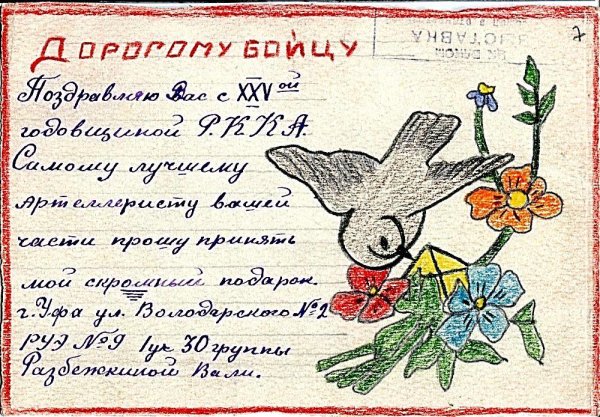 ДОРОГОМУ БОЙЦУ
7
ВЫСТАВКА
Поздравляю Вас с XXVой
годовщиной Р.К.К.А.
Самому лучшему
артеллеристу вашей
части прошу принять
мой скромный подарок.
г. Уфа ул. Володарского №2
РУЭ №9 1 ух 30 группы
Разбежкиной Вали.